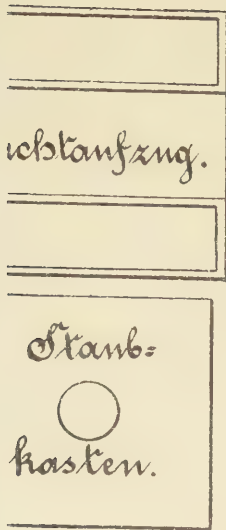 chtaufzug.
Staub-
kasten.